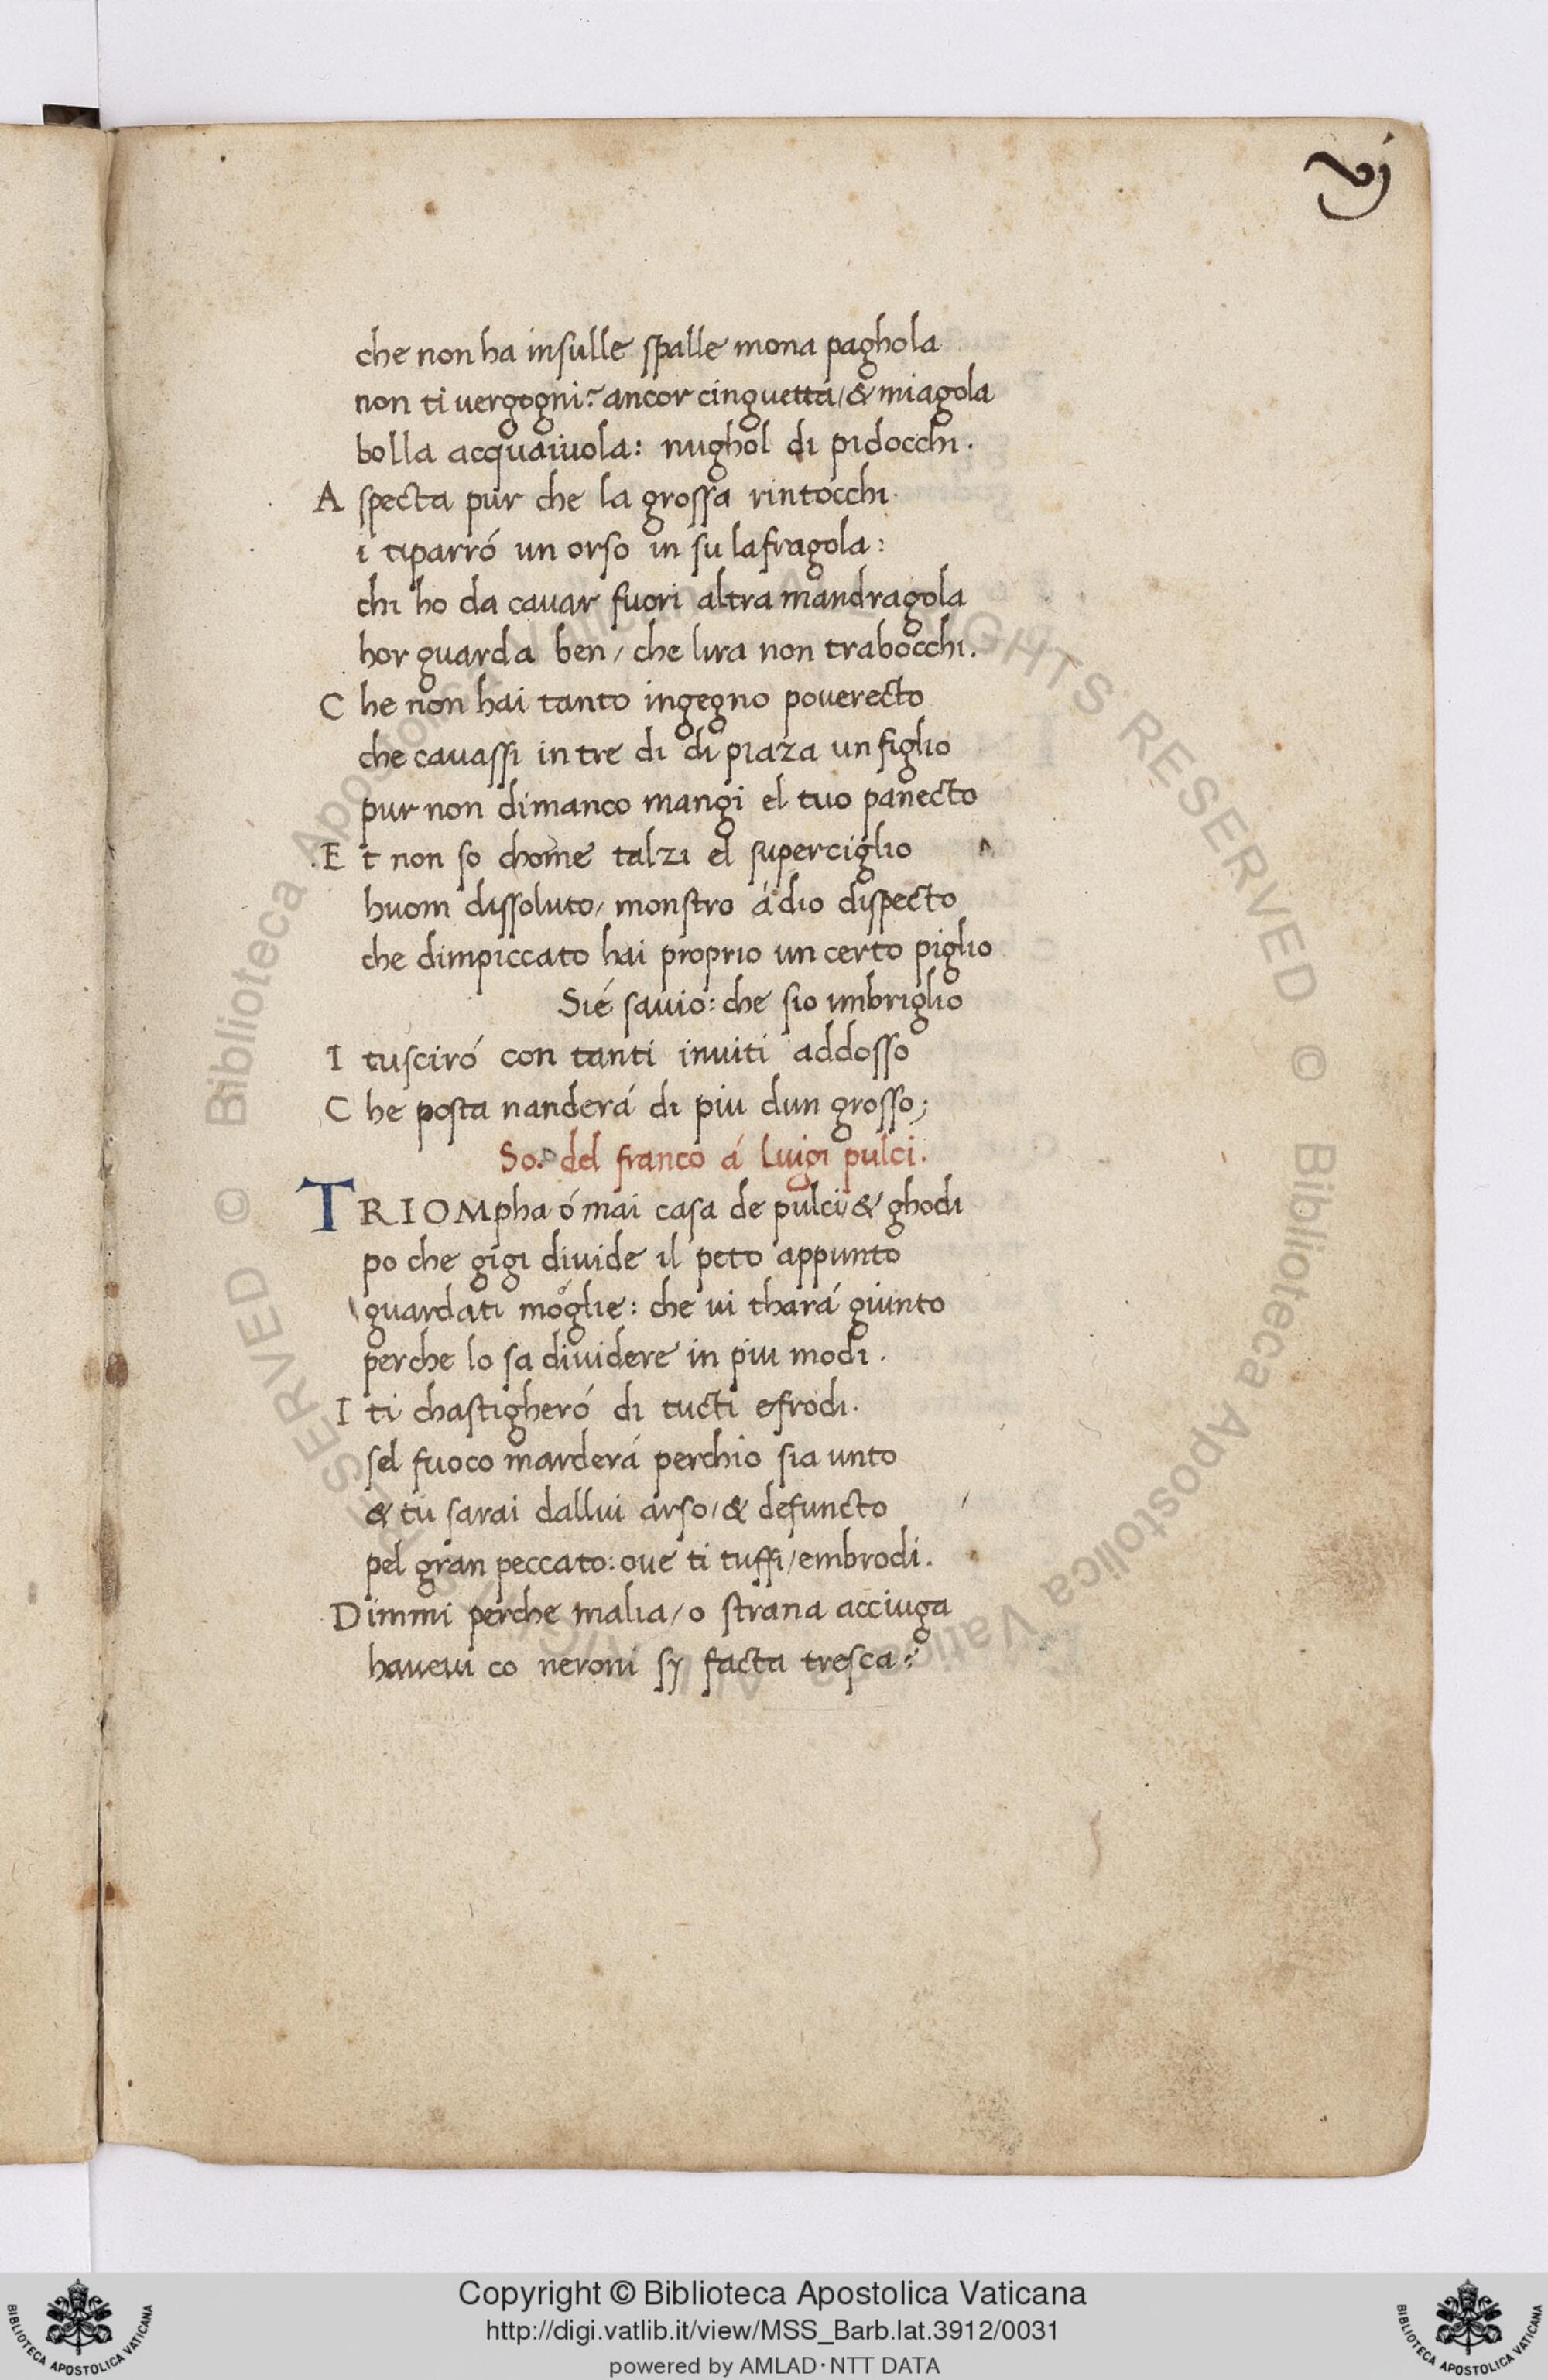 vj
che non ha insulle spalle mona paghola
non ti vergogni? ancor cinguetta/& miagola
bolla acquaiuola: nughol di pidocchi.
A specta pur che la grossa rintocchi.
i tiparró un orso in su lafragola:
chi ho da cauar fuori altra mandragola
hor guarda ben/ che lira non trabocchi.
C he non hai tanto ingegno pouerecto
che cauassi in tre di di piaza un figlio
pur non dimanco mangi el tuo panecto
E t non so chome talzi el superciglio
huom dissoluto/ monstro á dio dispecto
che dimpiccato hai proprio un certo piglio
Sié sauio: che sio umbriglio
I tusciró con tanti inuiti addosso
C he posta nanderá di piu dun grosso;
So. del franco á luigi pulci.
TRIOMpha ó mai casa de pulci/& ghodi
po che gigi diuide il peto appunto
guardati moglie: che ui thará giunto
perche lo sa diuidere in piu modi.
I ti chastigheró di tucti efrodi.
sel fuoco marderá perchio sia unto
& tu sarai dallui arso/& defuncto
pel gran peccato: oue ti tuffi/embrodi.
Dimmi perche malia/o strana acciuga
haueui co neroni sy facta tresca?
© Biblioteca Apostolica Vaticana ALL RIGHTS RESERVED © Biblioteca Apostolica Vaticana ALL RIGHTS RESERVED
Copyright © Biblioteca Apostolica Vaticana
http://digi.vatlib.it/view/MSS_Barb.lat.3912/0031
powered by AMLAD·NTT DATA
BIBLIOTECA APOSTOLICA VATICANA
BIBLIOTECA APOSTOLICA VATICANA